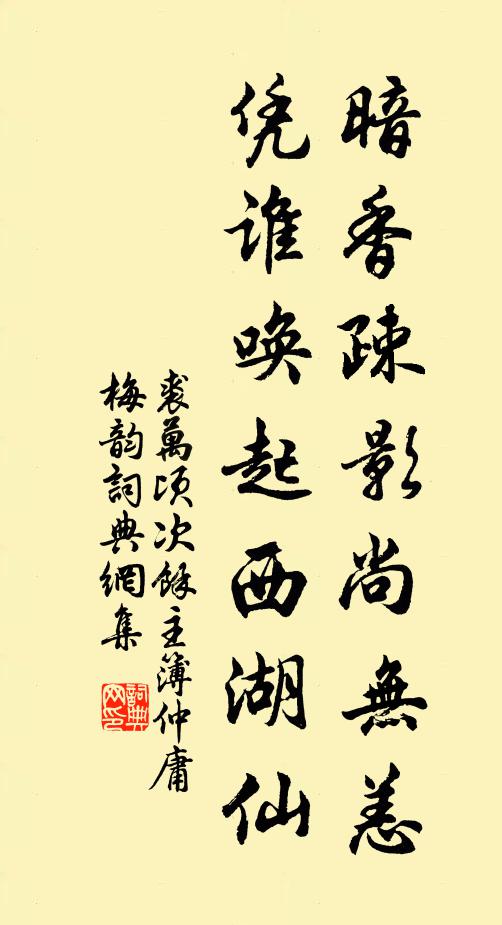 暗香疎影尚無恙
凭誰喚起西湖仙
裘萬頃次餘主簿仲庸
梅韵詞典網集
詞典
网印